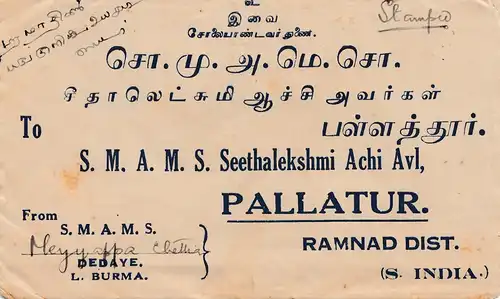 உ
Stamped
இவை
சோலையாண்டவர் துணை.
சொ. மு. அ. மெ. சொ.
சீதாலெட்சுமி ஆச்சி அவர்கள்
To
பள்ளத்தூர்.
S. M. A. M. S. Seethalekshmi Achi Avl,
PALLATUR.
RAMNAD DIST.
(S. INDIA.)
From
S. M. A. M. S.
Meyyappa Chettiar
DEDAYE.
L. BURMA.